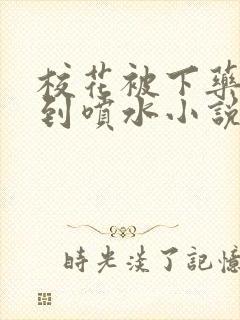 校花被下藥
到噴水小說
時光淡了記憶